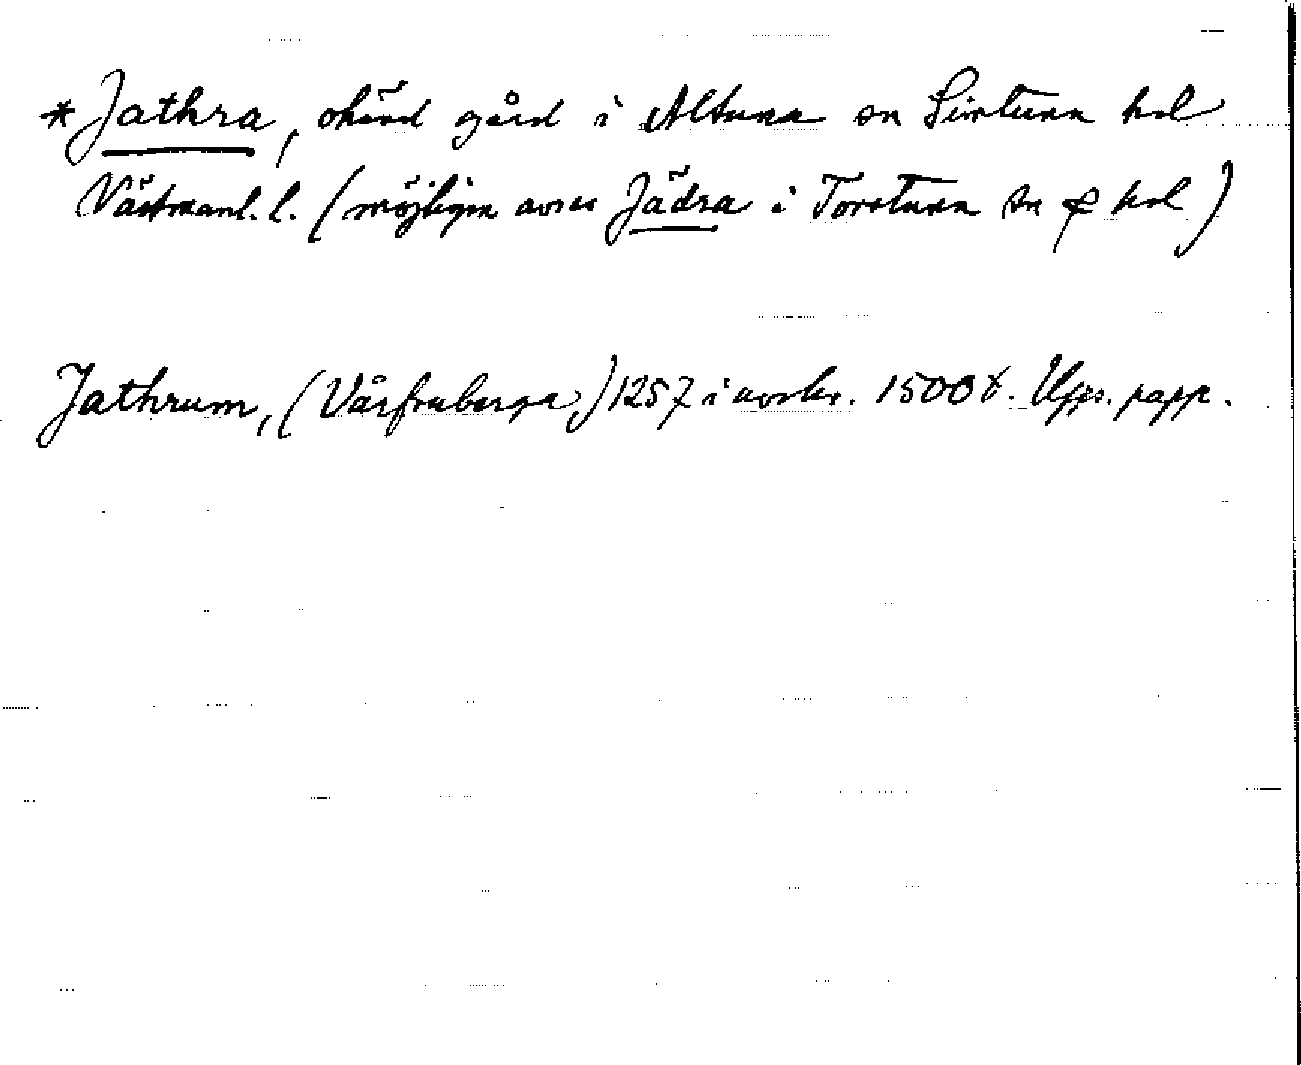 *Jathra, okänd gård i Altuna sn Simtuna hd
Västmanl. l. (möjligen avses Jädra i Torstuna sn o hd)
Jathrum, (Vårfruberga) 1257 i avskr. 1500t. Upps. papp.